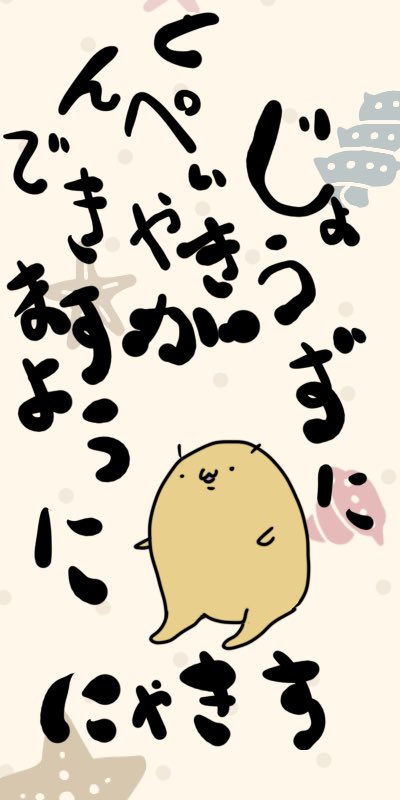 じょうずに
とんぺいやきが
できますように
にゃきす